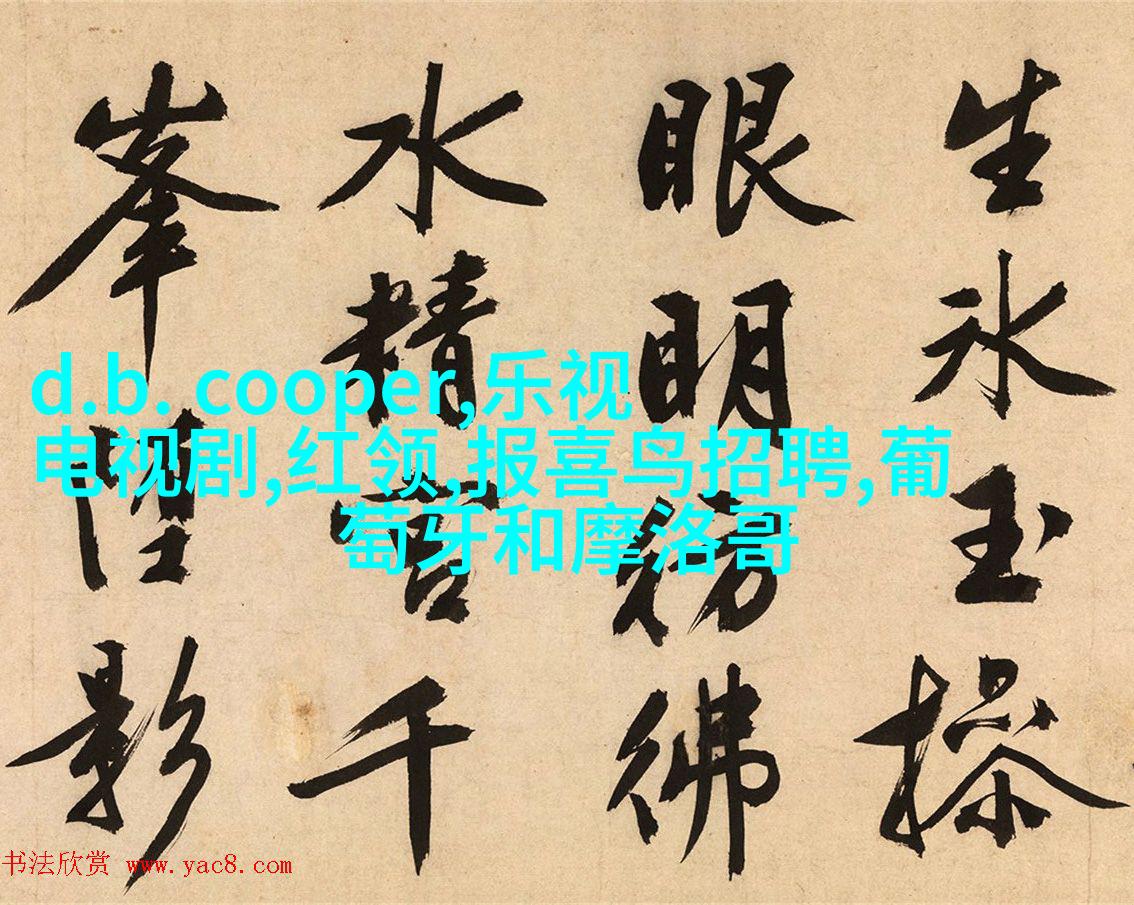 生氷玉操
眼明彷彿
水精宮千
峯影
d.b. cooper,乐视
电视剧,红领,报喜鸟招聘,葡
萄牙和摩洛哥
书法欣赏 www.yac8.com